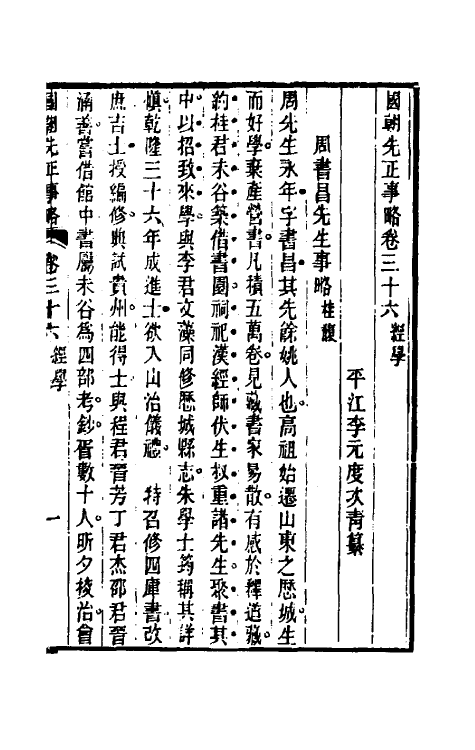 國朝先正事略卷三十六 經學
平江李元度次青纂
周書昌先生事略 桂馥
周先生永年字書昌其先餘姚人也高祖始遷山東之歷城生
而好學棄產營書凡積五萬卷見藏書家易散有感於釋道藏
約桂君未谷築借書園祠祀漢經師伏生叔重諸先生聚書其
中以招致來學與李君文藻同修歷城縣志朱學士筠稱其詳
愼乾隆三十六年成進士欲入山治儀禮 特召修四庫書改
庶吉士授編修典試貴州能得士與程君晉芳丁君杰邵君晉
涵善嘗借館中書屬未谷爲四部考鈔胥數十人昕夕校治會
國朝先正事略 卷三十六 經學 一